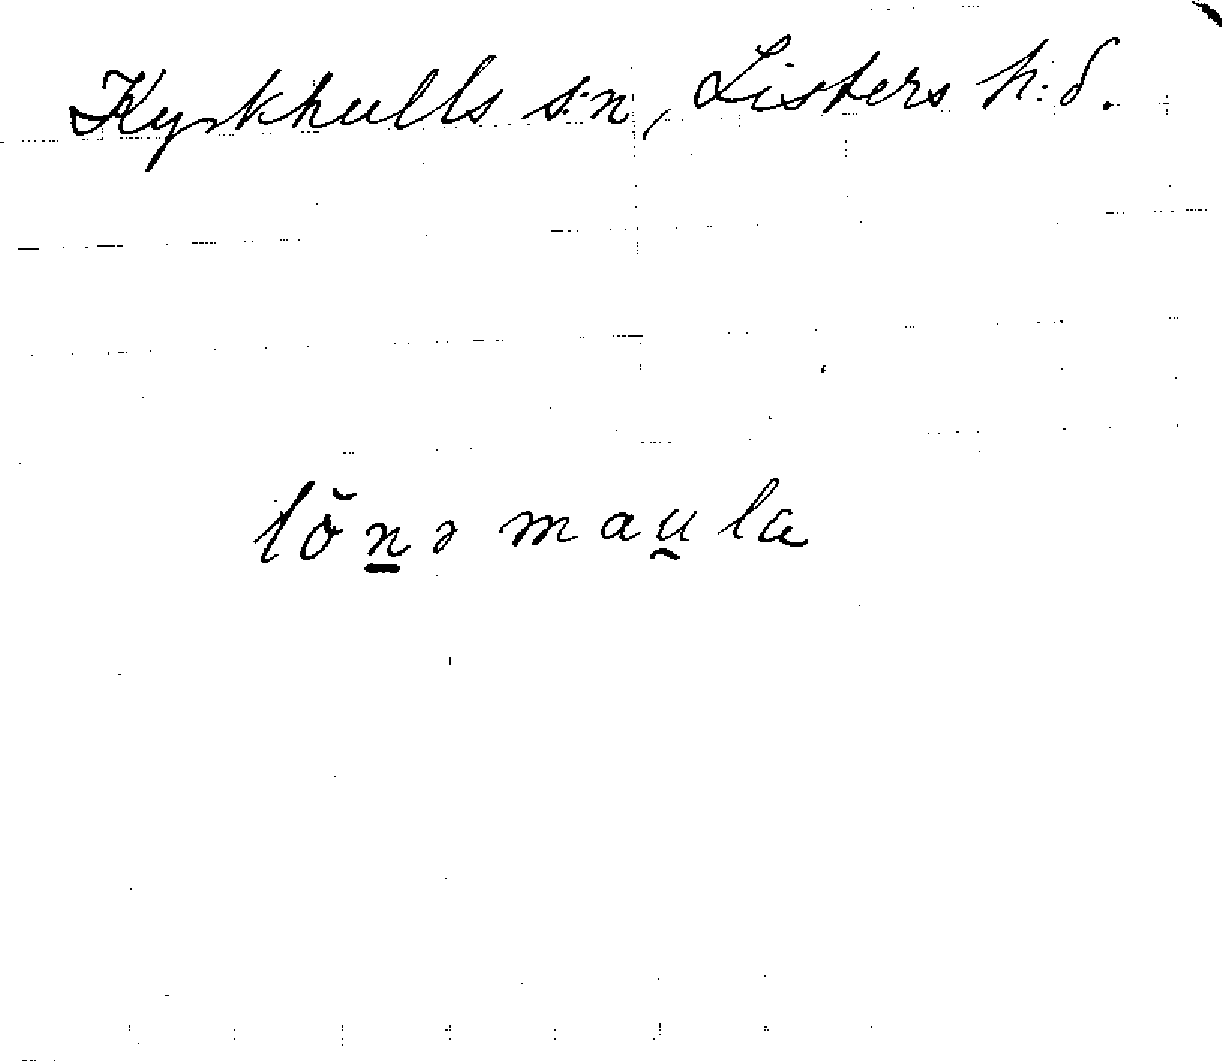 Kyrkhults s:n, Listers h:d.
lŏn̲ə mau̯la